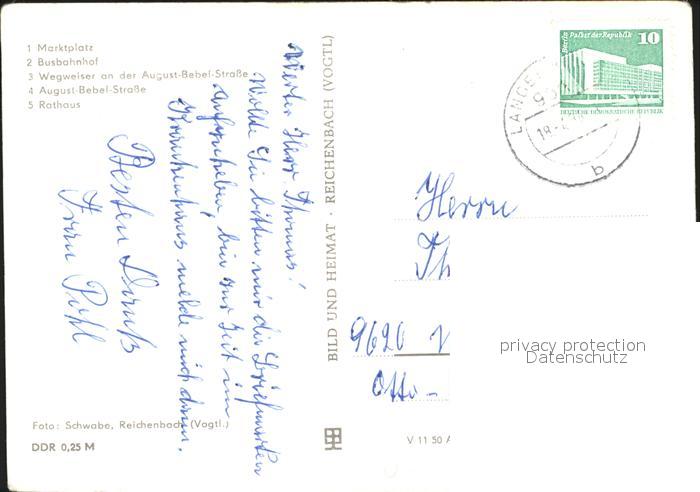 1 Marktplatz
2 Busbahnhof
3 Wegweiser an der August-Bebel-Straße
4 August-Bebel-Straße
5 Rathaus
Werter Herr Thomas!
Wollte Sie bitten mir die Briefmarken
aufzuheben, bin zur Zeit im
Krankenhaus melde mich dann.
Besten Dank
Frau Pühl
Foto: Schwabe, Reichenbach (Vogtl.)
DDR 0,25 M
BILD UND HEIMAT · REICHENBACH (VOGTL)
V 11 50 A
Berlin Palast der Republik
10
DEUTSCHE DEMOKRATISCHE REPUBLIK
LANGE
b
Herrn
Th
9620
Otto-
privacy protection
Datenschutz